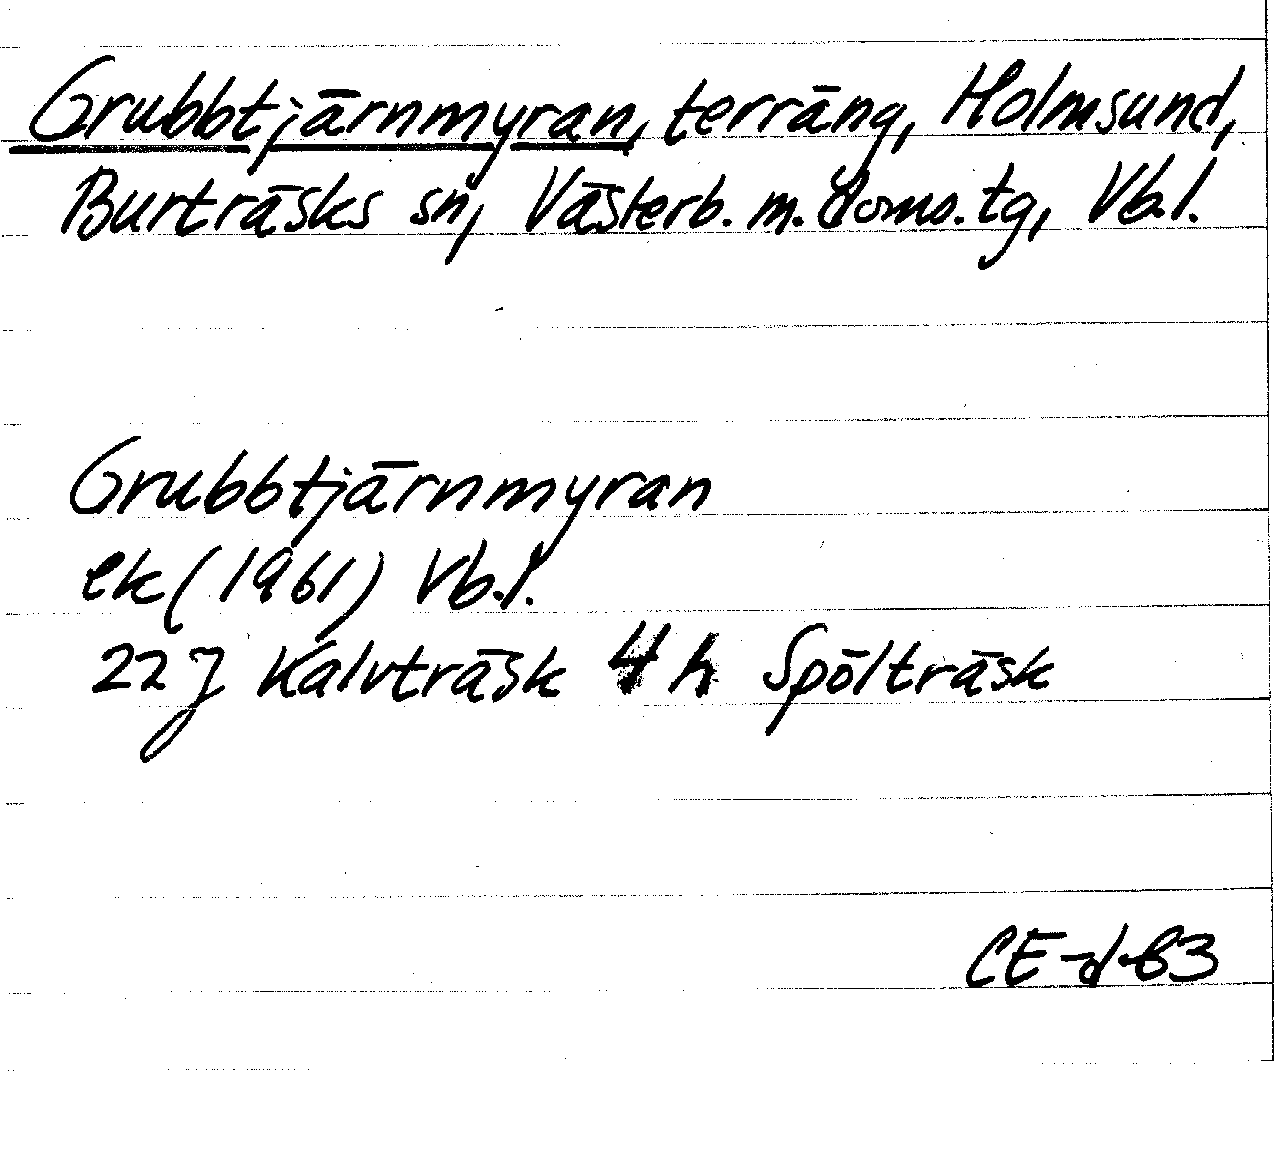 Grubbtjärnmyran, terräng, Holmsund,
Burträsks sn, Västerb. m. doms.tg, Vb.l.
Grubbtjärnmyran
ek (1961) Vb.l.
22 J Kalvträsk 4 h Spölträsk
CE-d-83